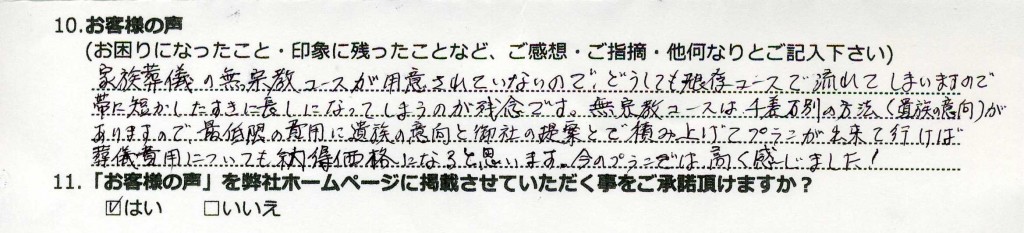 10.お客様の声
(お困りになったこと・印象に残ったことなど、ご感想・ご指摘・他何なりとご記入下さい)
家族葬儀の無宗教コースが用意されていないので、どうしても既存コースで流れてしまいますので
帯に短かしたすきに長しになってしまうのが残念です。無宗教コースは千差万別の方法(遺族の意向)が
ありますので、最低限の費用に遺族の意向と御社の提案とで積み上げてプランが出来て行けば
葬儀費用についても納得価格になると思います。今のプランでは高く感じました!
11.「お客様の声」を弊社ホームページに掲載させていただく事をご承諾頂けますか?
☑はい　□いいえ